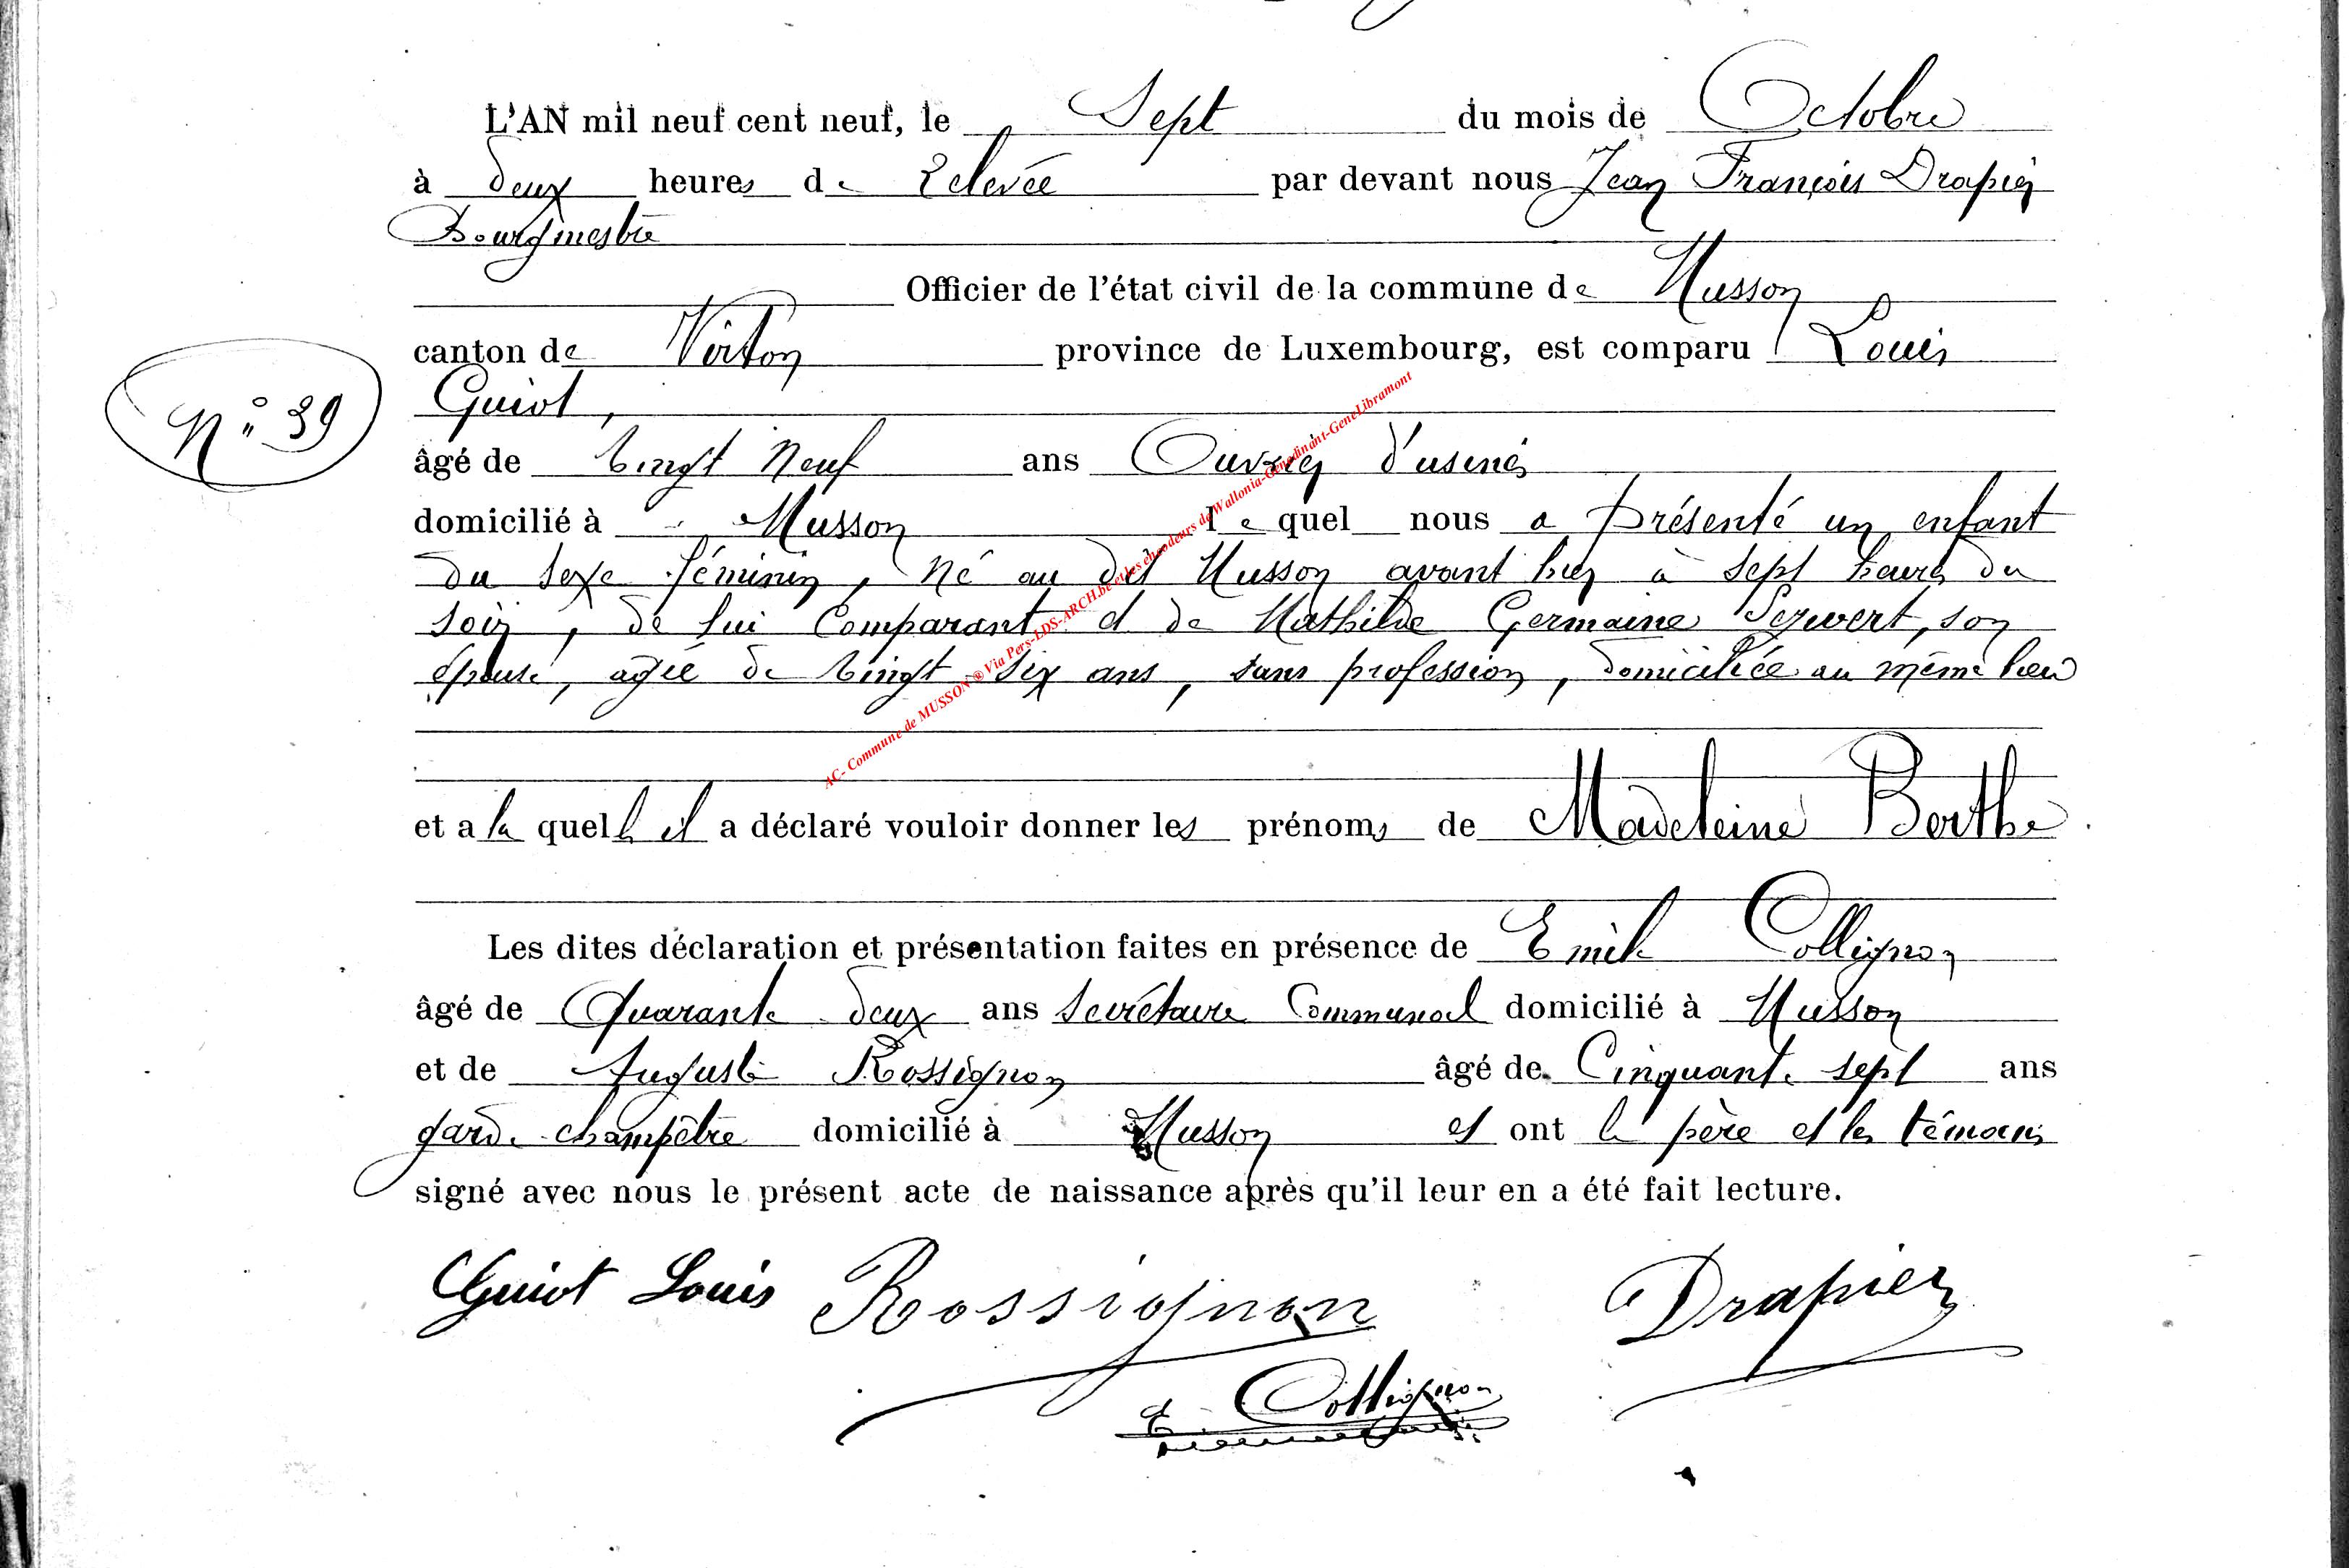 L'AN mil neuf cent neuf, le Sept du mois de Octobre
à deux heures de Relevée par devant nous Jean François Drapier
Bourgmestre
Officier de l'état civil de la commune de Musson
canton de Virton province de Luxembourg, est comparu Louis
Guiot,
N° 39
âgé de vingt Neuf ans Ouvrier d'usines
domicilié à Musson le quel nous a présenté un enfant
du sexe féminin, né au dit Musson avant hier à sept heures du
soir, de lui Comparant et de Mathilde Germaine , son
épouse, agée de vingt six ans, sans profession, domiciliée au même lieu
AC- Commune de MUSSON ® Via Pers-LDS-ARCH.be et les encodeurs de Wallonia-Genedinant-GeneLibramont
et a la quelle il a déclaré vouloir donner les prénoms de Madeleine Berthe.
Les dites déclaration et présentation faites en présence de Emile Collignon
âgé de Quarante deux ans Secrétaire Communal domicilié à Musson
et de Auguste Rossignon âgé de Cinquante sept ans
garde champêtre domicilié à Musson et ont le père et les témoins
signé avec nous le présent acte de naissance après qu'il leur en a été fait lecture.
Guiot Louis Rossignon Drapier
E. Collignon